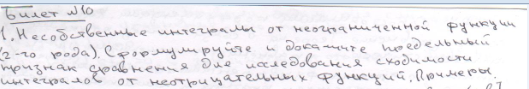 Билет №10
1. Несобственные интегралы от неограниченной функции
(2-го рода). Сформулируйте и докажите предельный
признак сравнения для исследования сходимости
интегралов от неотрицательных функций. Примеры.